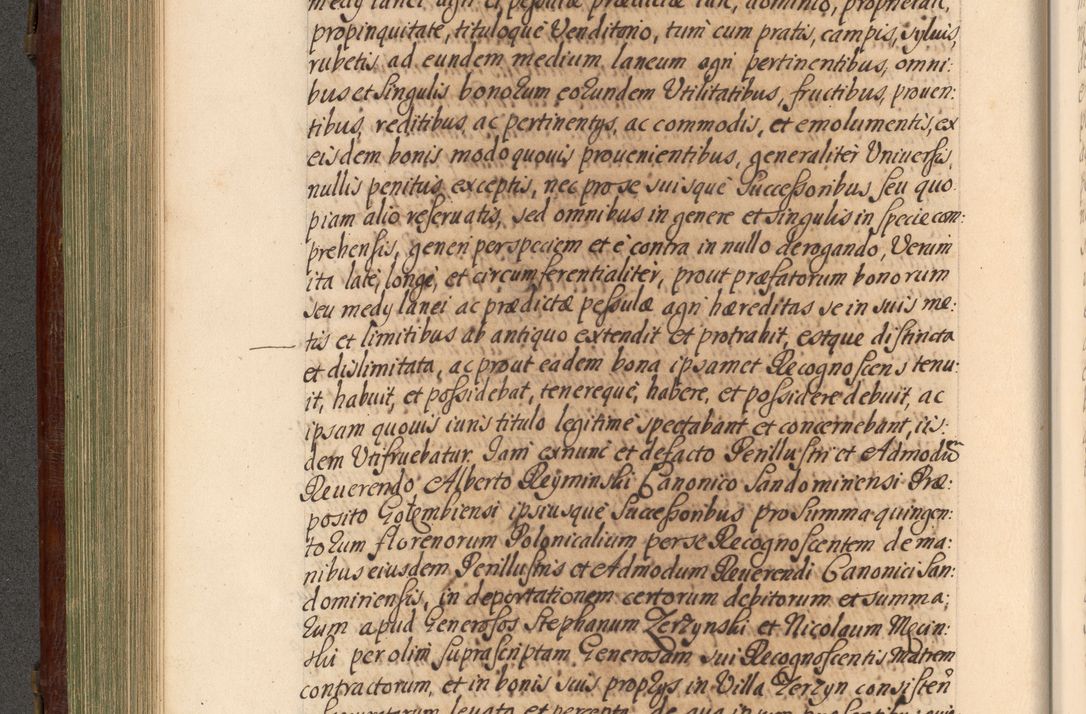 medy lanei agri et pessulæ prædictæ iure, dominio, proprietate,
propinquitate, tituloque Venditorio, tum cum pratis, campis, syluis,
rubetis ad eundem medium laneum agri pertinentibus, omni:
bus et singulis bonorum eorundem Vtilitatibus, fructibus, prouen:
tibus, reditibus, ac pertinentys, ac commodis, et emolumentis, ex
eisdem bonis modo quouis prouenientibus, generaliter Uniuersis,
nullis penitus exceptis, nec pro se suisque Successoribus seu quo
piam alio reseruatis, sed omnibus in genere et singulis in specie com:
prehensis, generi per speciem et è contra in nullo derogando, Verum
ita latè, longè, et circumferentialiter, prout præfatorum bonorum
seu medy lanei ac prædictæ pessulæ agri hæreditas se in suis me:
tis et limitibus ab antiquo extendit et protrahit, estque distincta
et dislimitata, ac prout eadem bona ipsamet Recognoscens tenu:
it, habuit, et possidebat, tenereque, habere, et possidere debuit, ac
ipsam quouis iuris titulo legitime spectabant et concernebant, iis:
dem Utifruebatur. Iam exnunc et defacto Perillustri et Admodum
Reuerendo Alberto Reyminski Canonico Sandomiriensi Præ:
posito Gołembiensi ipsiusque Successoribus pro summa quingen:
torum florenorum Polonicalium per se Recognoscentem de ma:
nibus eiusdem Perillustris et Admodum Reuerendi Canonici San:
domiriensis, in deportationem certorum debitorum et summa:
rum apud Generosos Stephanum Zerzynski et Nicolaum Mecin:
ski per olim suprascriptam Generosam sui Recognoscentis Matrem
contractorum, et in bonis suis proprys in Villa Zerzyn consisten
leuata et percepta, de qua